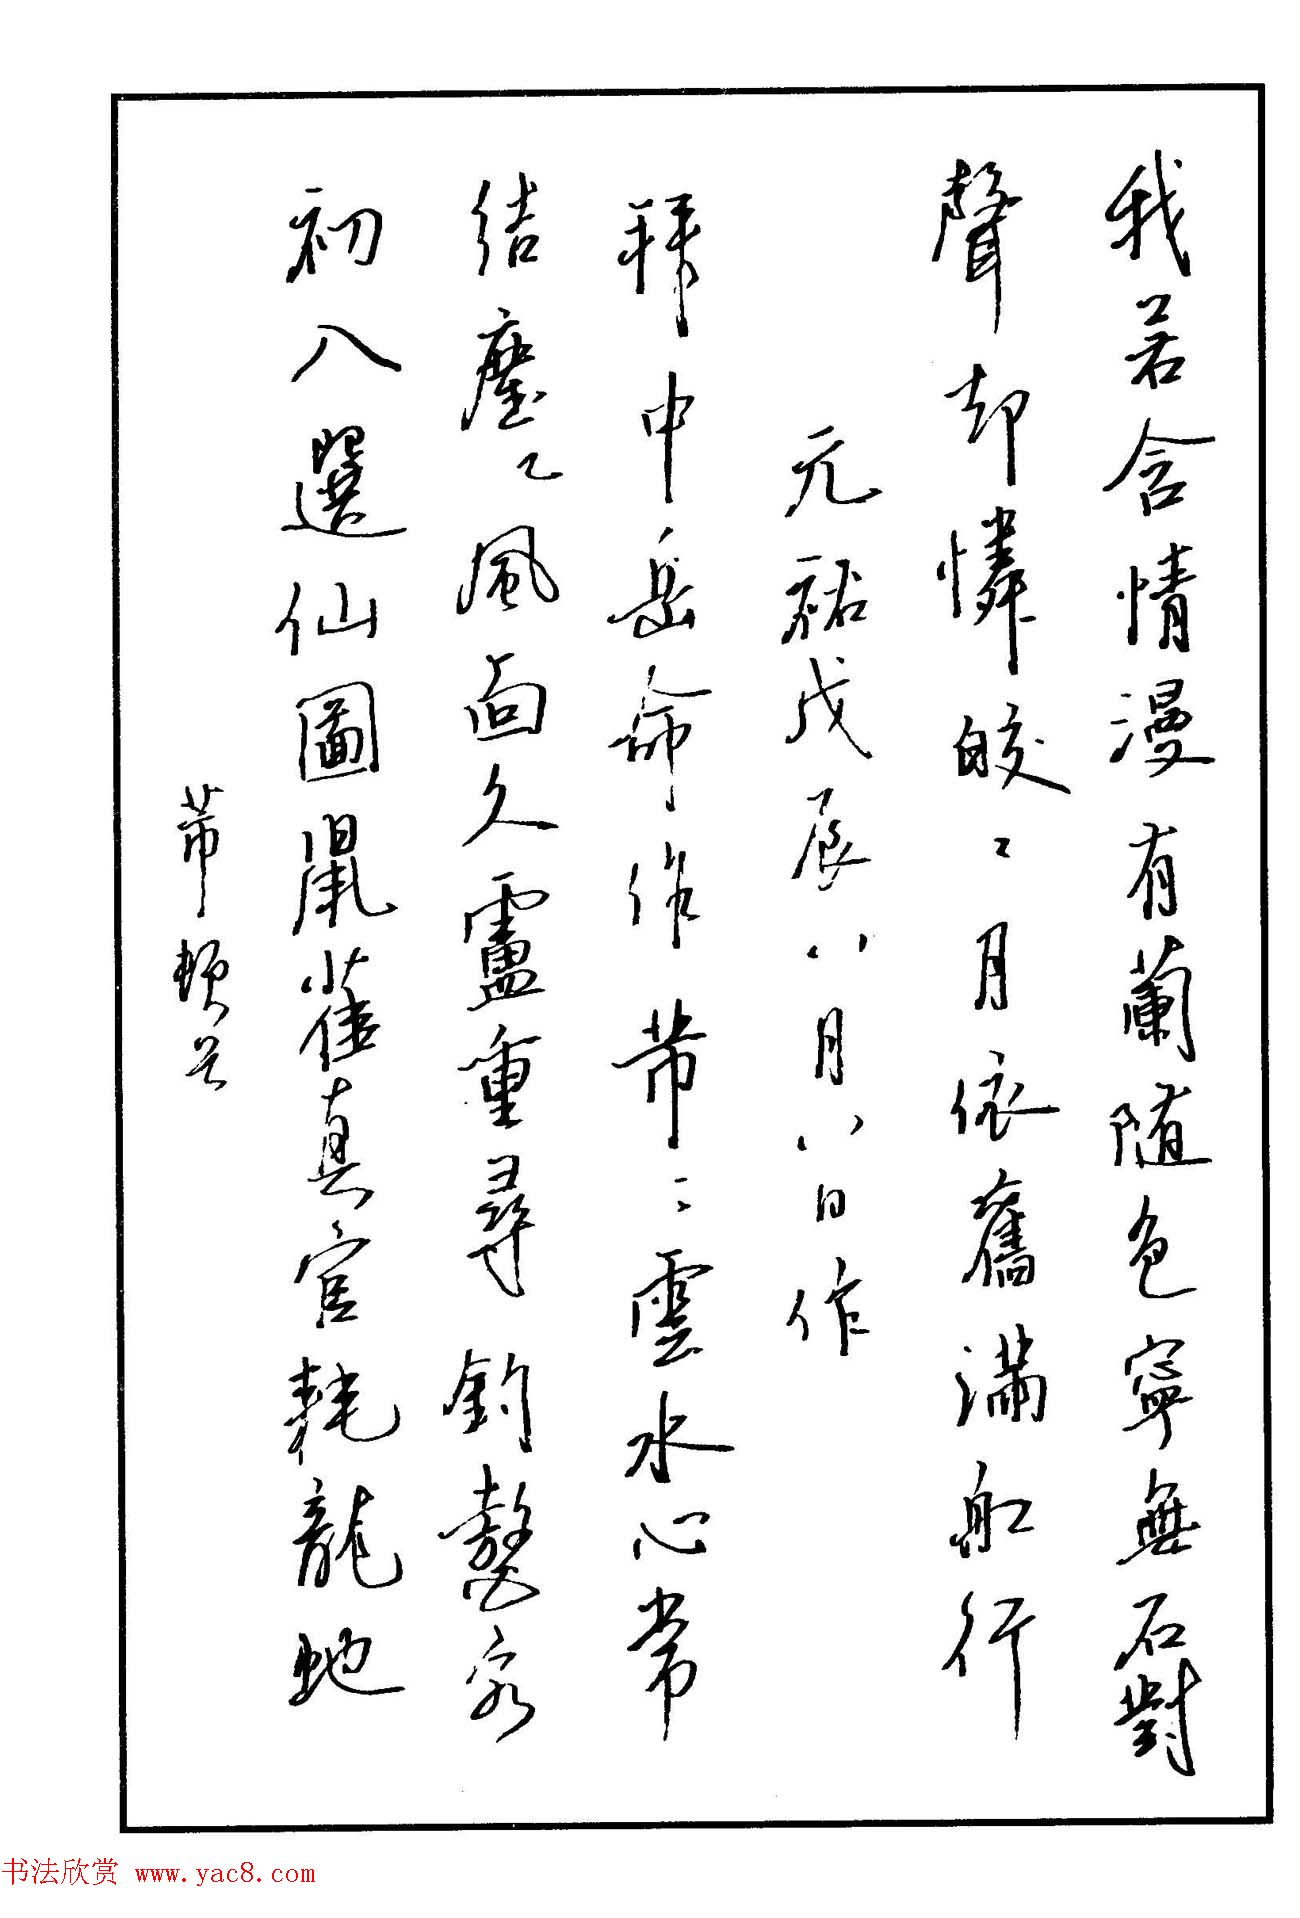 我若含情漫有蘭随色寧無石對
聲却憐皎々月依舊滿舡行
元祐戊辰八月八日作
拜中岳命作芾々雲水心常
結塵々風面久盧重尋釣鼇客
初入選仙圖鼠雚真官耗龍蛇
芾頓首
书法欣赏 www.yac8.com